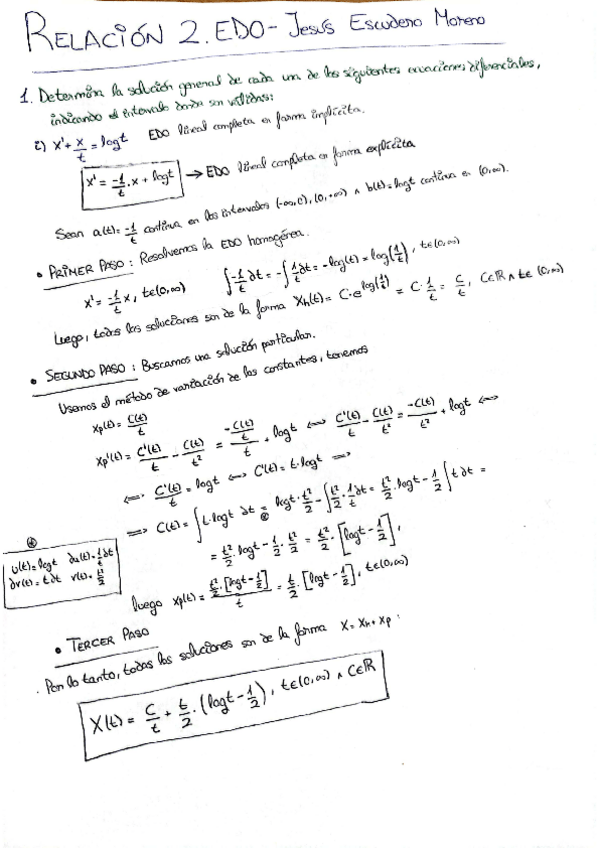 RELACIÓN 2. EDO - Jesús Escudero Moreno
1. Determina la solución general de cada una de las siguientes ecuaciones diferenciales,
indicando el intervalo donde son válidas:
i) x' + x/t = logt EDO lineal completa en forma implícita.
x' = -1/t · x + logt → EDO lineal completa en forma explícita
Sean a(t) = -1/t continua en los intervalos (-∞,0), (0,+∞) ∧ b(t) = logt continua en (0,∞).
• PRIMER PASO: Resolvemos la EDO homogénea.
x' = -1/t x, t∈(0,∞) ∫ -1/t ∂t = -∫ 1/t ∂t = -log(t) = log(1/t), t∈(0,∞)
Luego, todas las soluciones son de la forma Xh(t) = C·e^log(1/t) = C·1/t = C/t, C∈ℝ ∧ t∈(0,∞)
• SEGUNDO PASO: Buscamos una solución particular.
Usamos el método de variación de las constantes, tenemos
xp(t) = C(t)/t
xp'(t) = C'(t)/t - C(t)/t² = -C(t)/t/t + logt ⟺ C'(t)/t - C(t)/t² = -C(t)/t² + logt ⟺
⟺ C'(t)/t = logt ⟺ C'(t) = t·logt ⟹
⟹ C(t) = ∫ t·logt ∂t =⊛ logt·t²/2 - ∫ t²/2·1/t ∂t = t²/2·logt - 1/2 ∫ t ∂t =
= t²/2·logt - 1/2·t²/2 = t²/2·[logt - 1/2],
⊛
u(t) = logt ∂u(t) = 1/t ∂t
∂v(t) = t ∂t v(t) = t²/2
luego xp(t) = t²/2·[logt - 1/2]/t = t/2·[logt - 1/2], t∈(0,∞)
• TERCER PASO
Por lo tanto, todas las soluciones son de la forma X = Xh + Xp:
X(t) = C/t + t/2·(logt - 1/2), t∈(0,∞) ∧ C∈ℝ